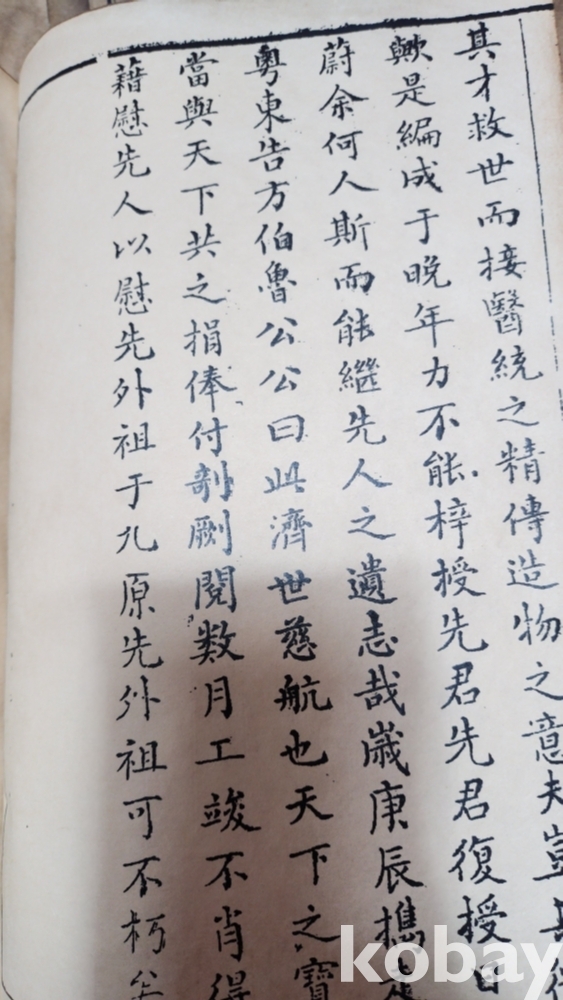 其才救世而接醫統之精傳造物之意夫豈
歟是編成于晚年力不能梓授先君先君復授
蔚余何人斯而能繼先人之遺志哉嵗庚辰攜
粵東告方伯魯公公曰此濟世慈航也天下之寶
當與天下共之捐俸付剞劂閱数月工竣不肖得
藉慰先人以慰先外祖于九原先外祖可不朽矣
kobay